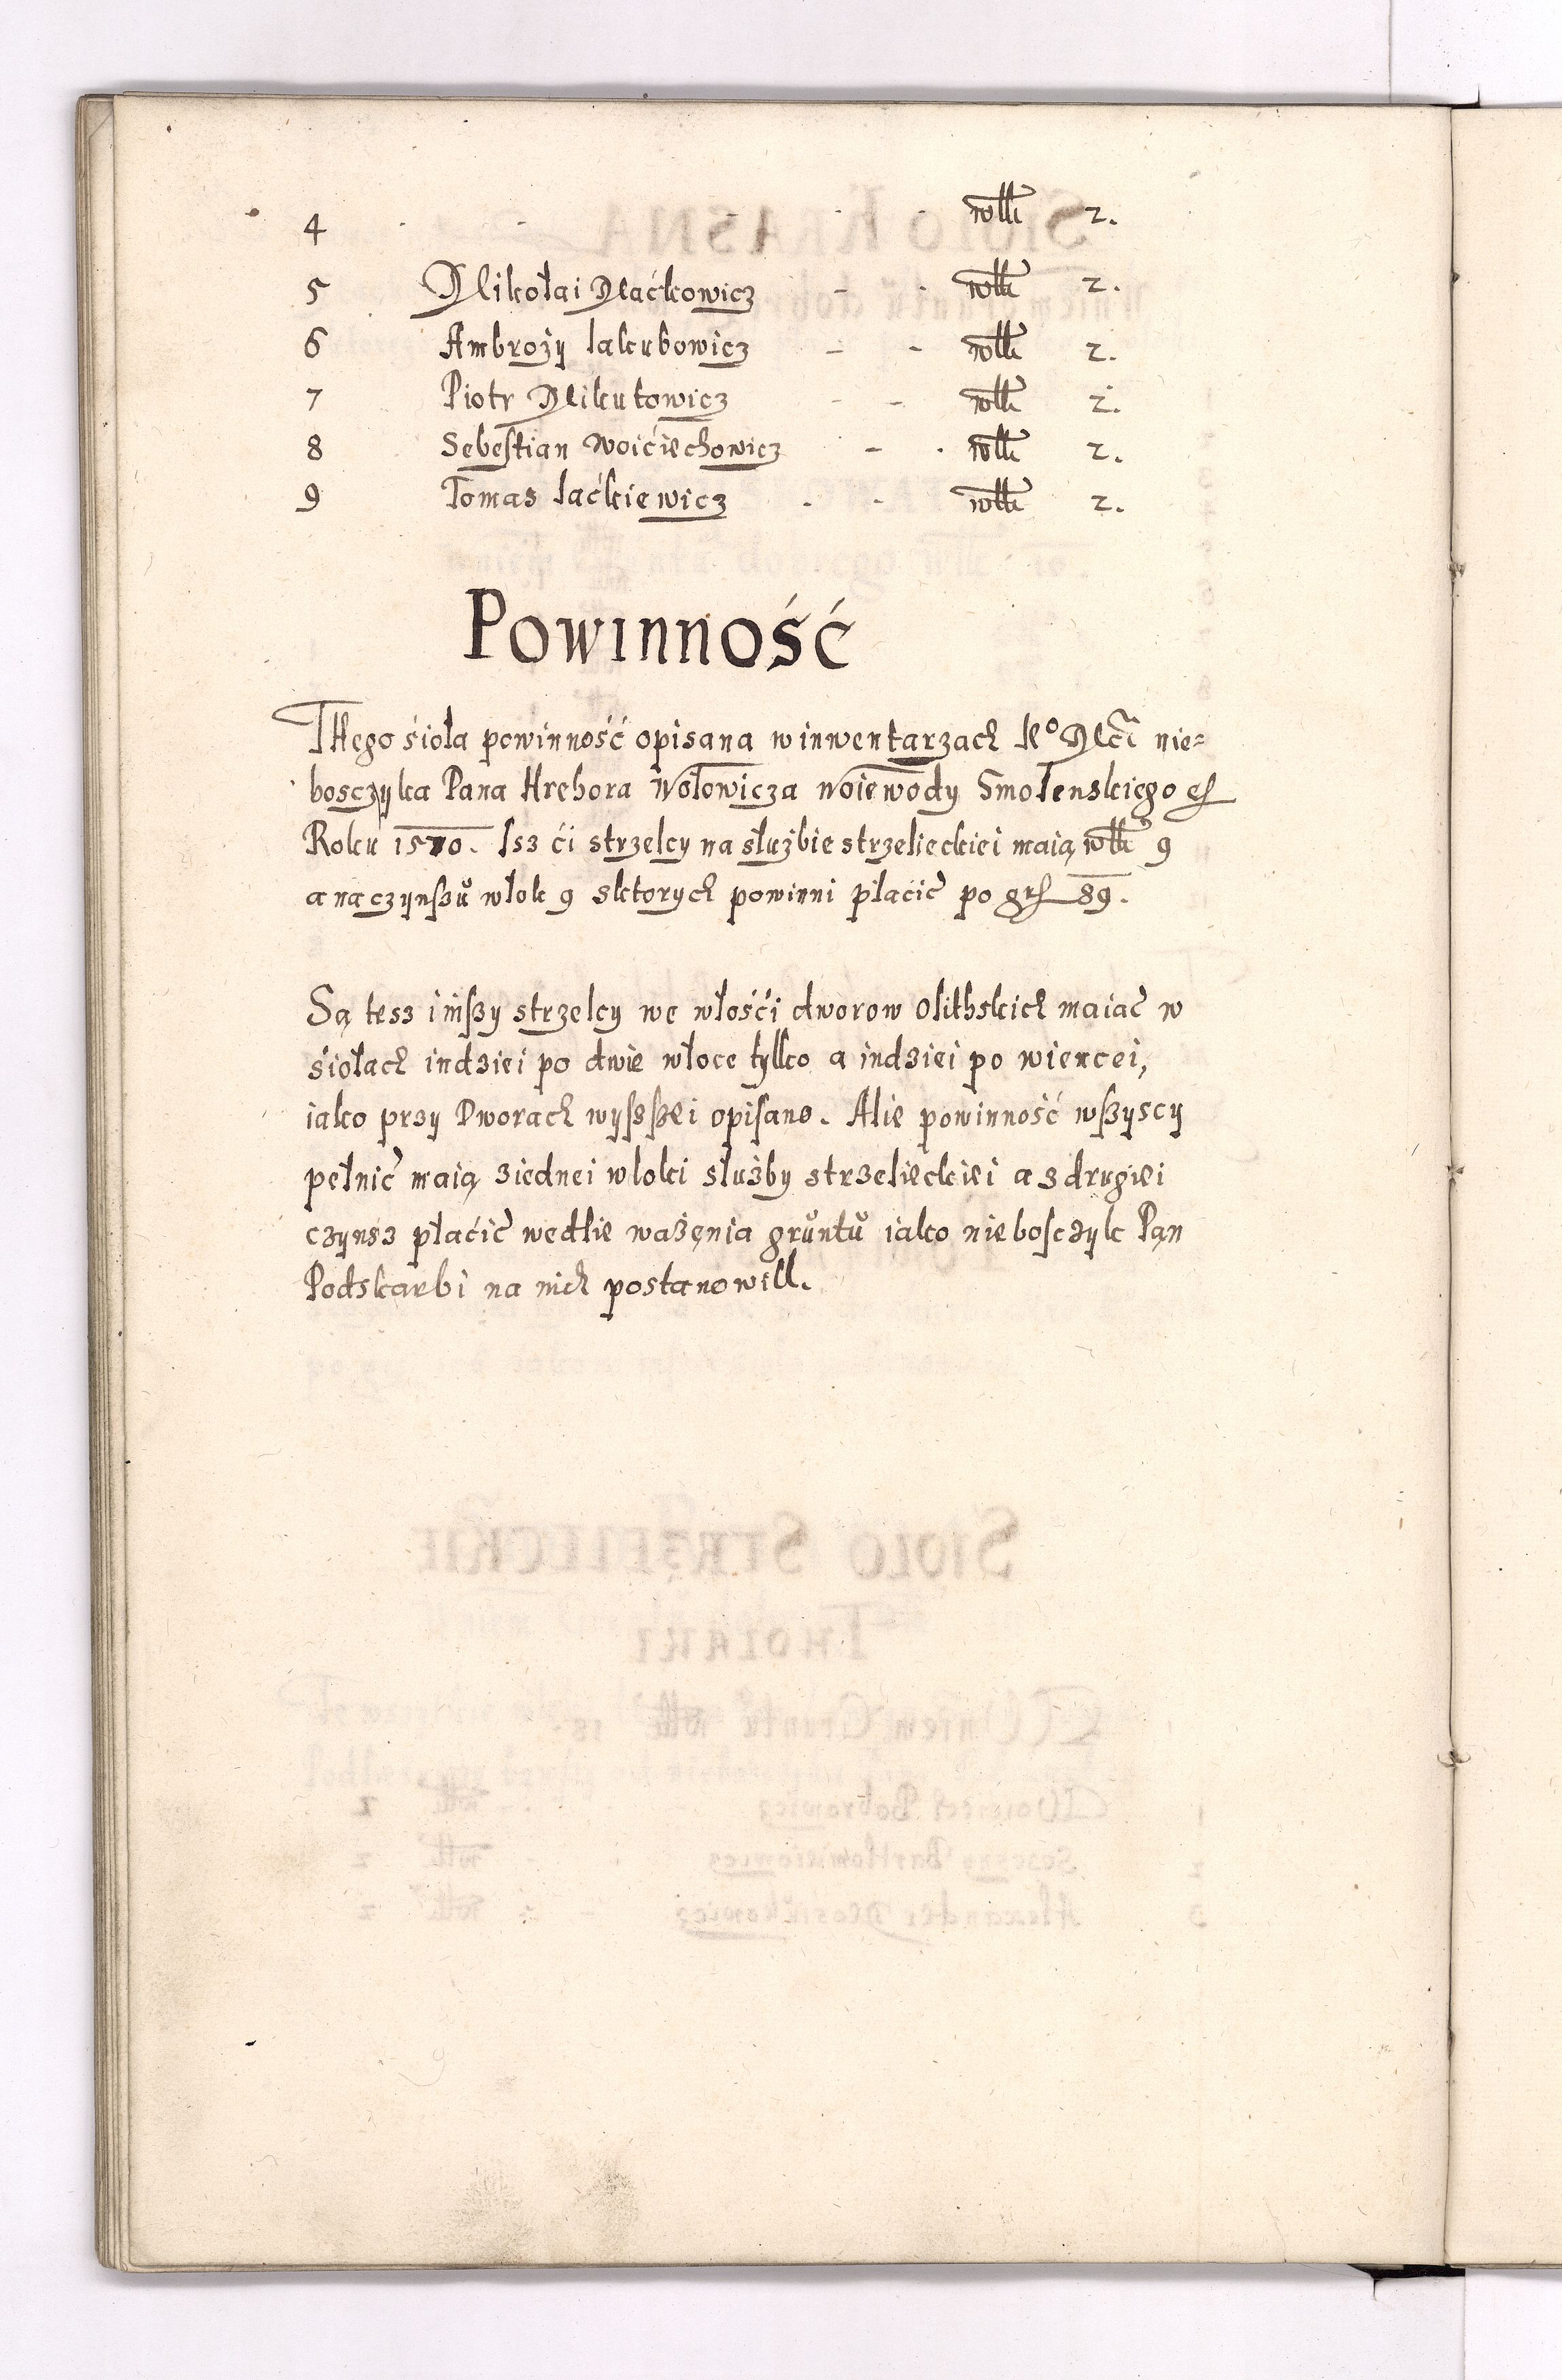 4 - - - - włk 2.
5 Mikołai Maćkowicz - - włk 2.
6 Ambroży Iakubowicz - - włk 2.
7 Piotr Mikutowicz - - włk 2.
8 Sebestian Woićiechowicz - - włk 2.
9 Tomas Iaćkiewicz - - włk 2.
Powinność
Thego śioła powinność opisana w inwentarzach Kº Mći nie=
bosczyka Pana Hrehora Wołowicza Woiewody Smolenskiego
Roku 1570. Isz ći strzelcy na służbie strzelieckiei maią włk 9
a na czynßů włok 9 sktorych powinni płaćić po grß 89.
Są tesz inßy strzelcy we włośći dworow Olithskich maiąc w
śiołach indziei po dwie włoce tylko a indziei po wiercei,
iako przy Dworach wysßei opisano. Alie powinność wßyscy
pełnić maią ziednei włoki służby strzelieckiei a z drugiei
czynsz płaćić wedlie ważęnia gruntů iako niebosczyk Pąn
Podskarbi na nich postanowill.